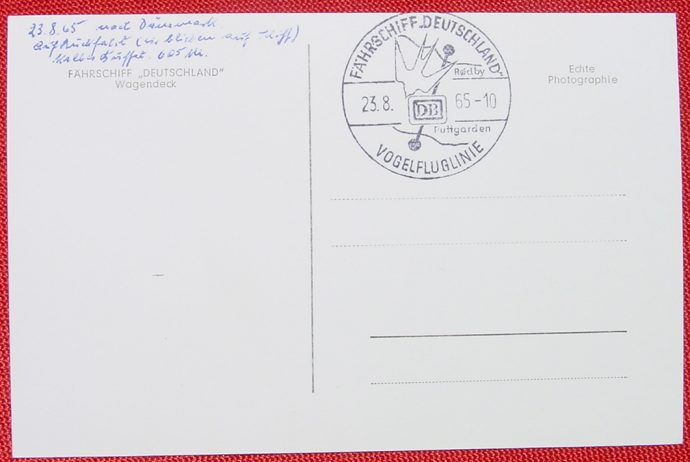 23.8.65 nach Dänemark
auf Rückfahrt (wir blieben auf Schiff)
Kaltes Buffet
FÄHRSCHIFF „DEUTSCHLAND"
Wagendeck
FÄHRSCHIFF „DEUTSCHLAND"
Rødby
23.8. DB 65-10
Puttgarden
VOGELFLUGLINIE
Echte
Photographie